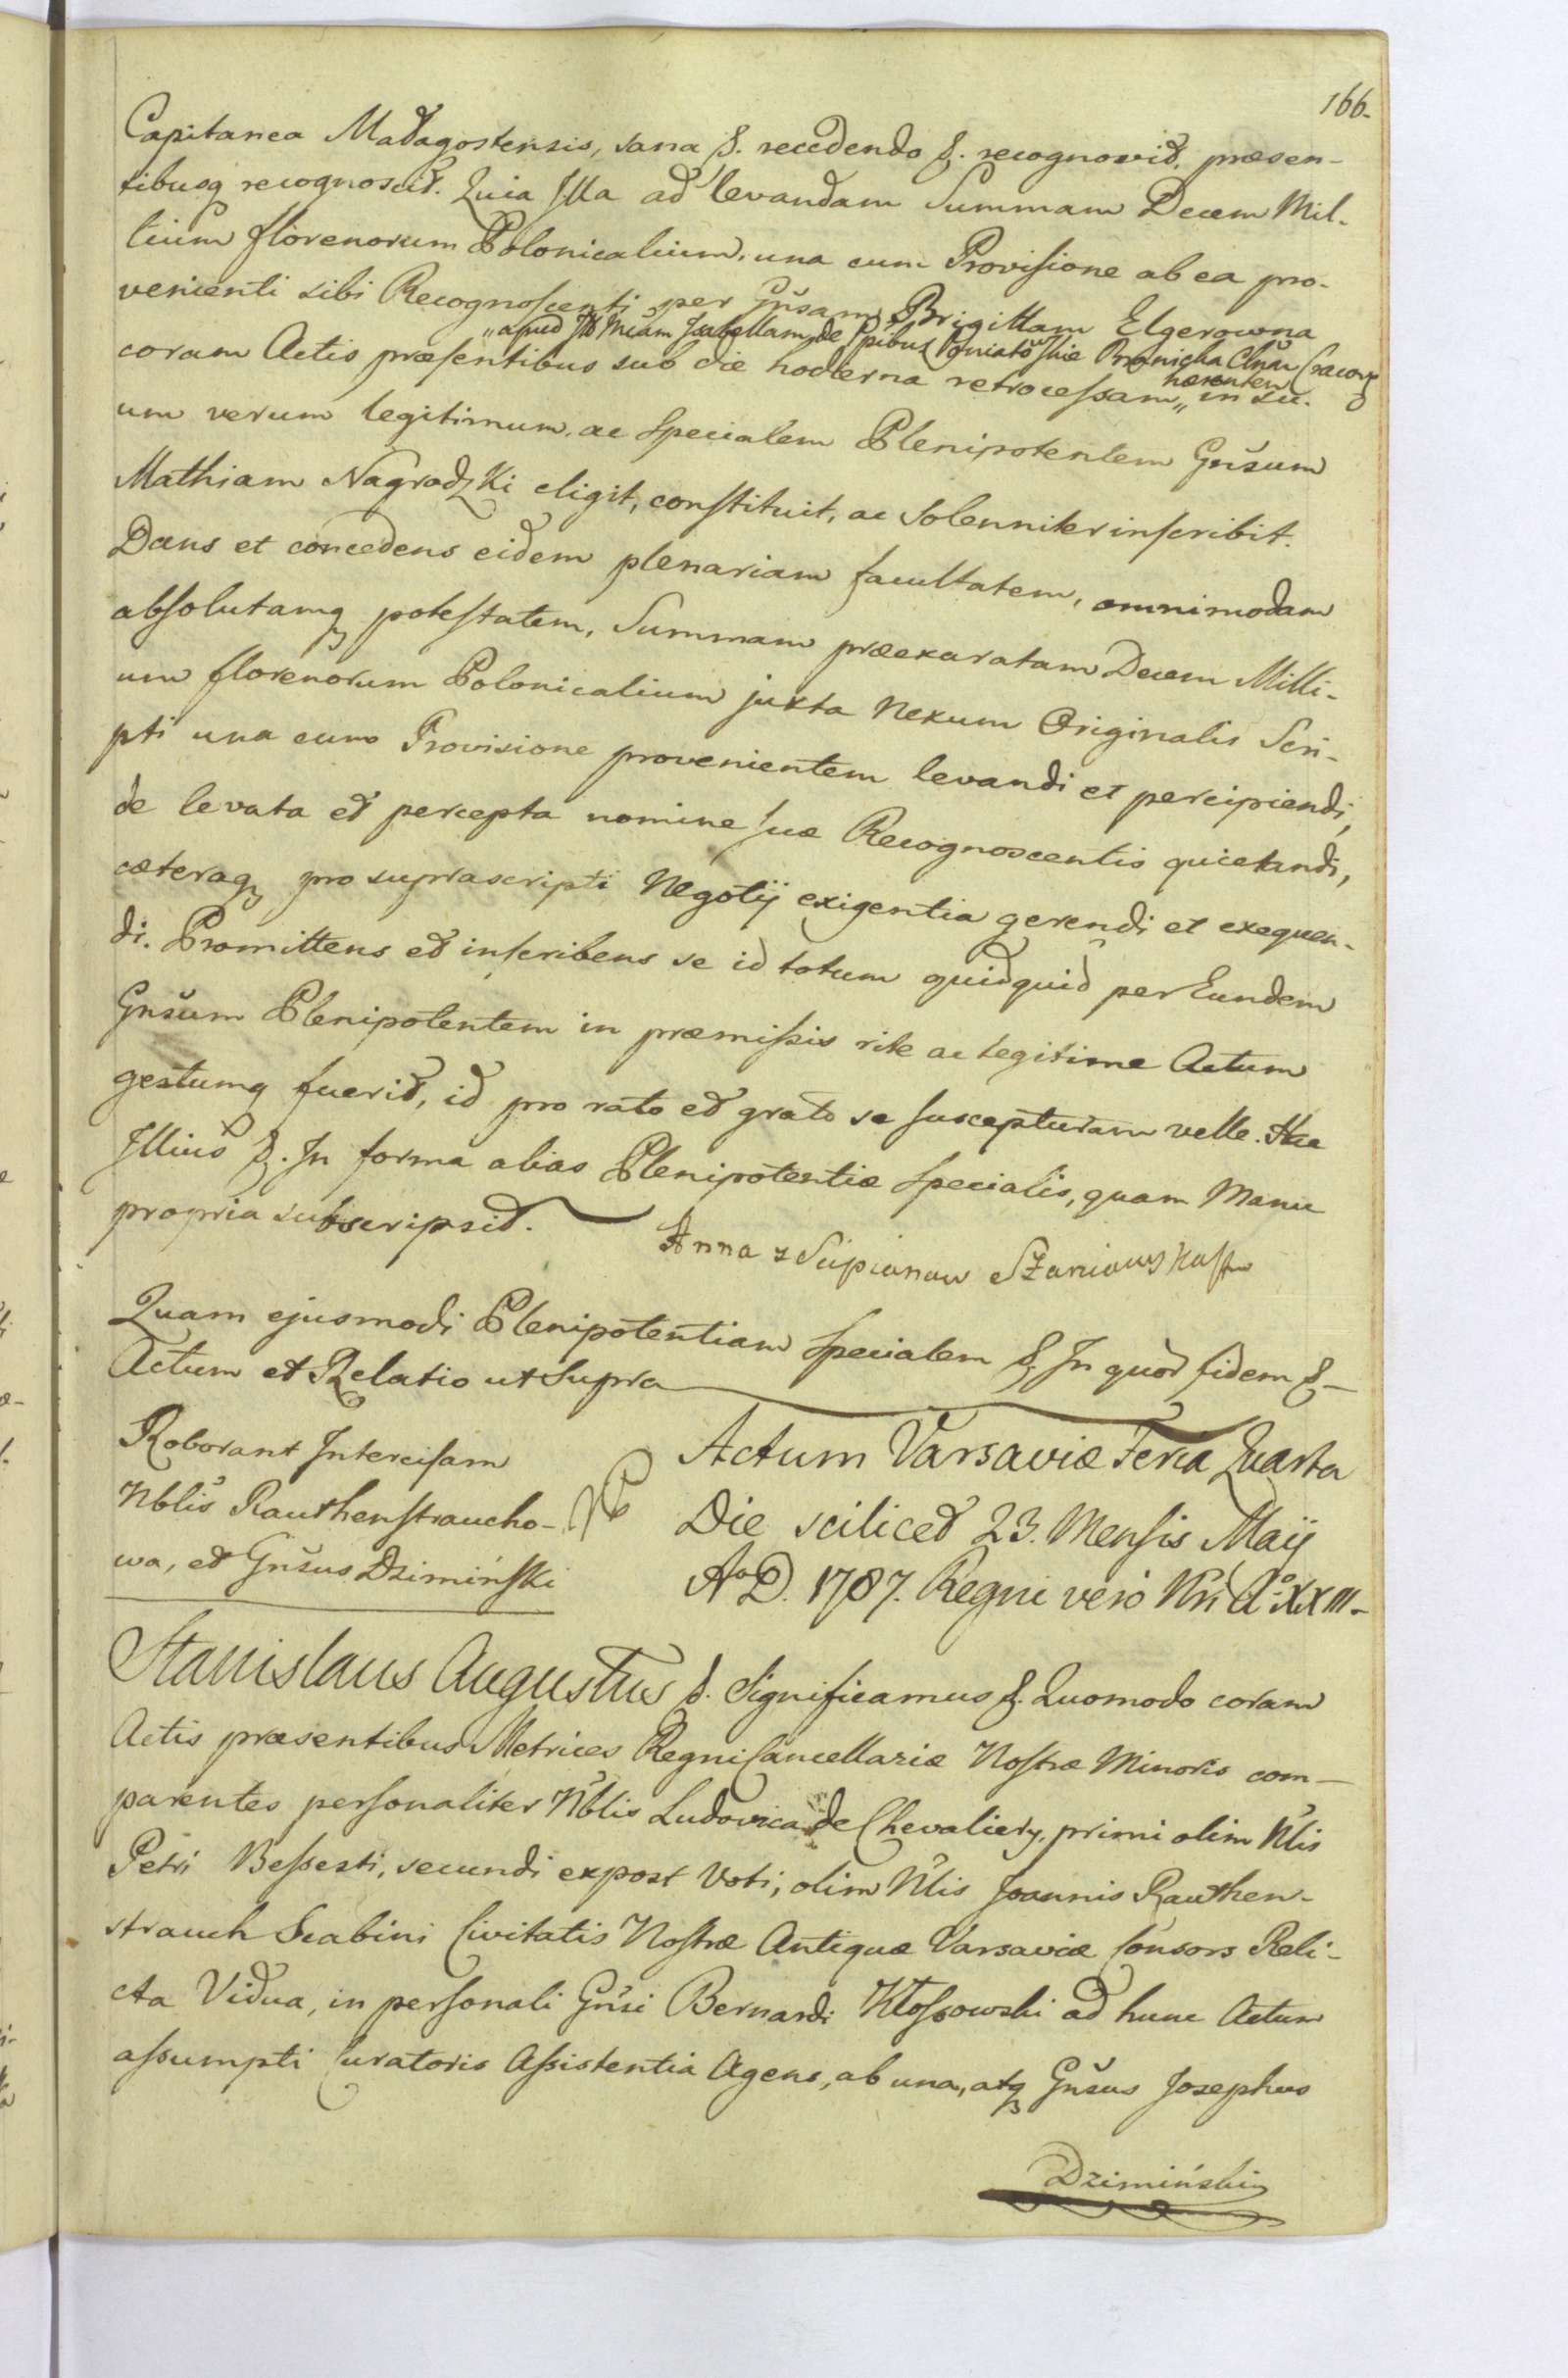 166.
Capitanea Madagostensis, sana &. recedendo &. recognovit. præsen-
tibusq recognoscit. Quia Illa ad levandam Summam Decem Mil-
lium florenorum Polonicalium, una cum Provisione ab ea pro-
venienti sibi Recognoscenti per Gñsam Brigittam Elgerowna
„apud Isabellam de Ppibus Poniatowskie Branicka Cracov
coram Actis præsentibus sub die hodierna retrocessam „ in su-
hærentem
um verum legitimum, ac Specialem Plenipotentem Gñsum
Mathiam Nagrodzki eligit, constituit, ac Solenniter inscribit.
Dans et concedens eidem plenariam facultatem, omnimodam
absolutamq potestatem, Summam præexaratam Decem Milli-
um florenorum Polonicalium juxta Nexum Originalis Scri-
pti una cum Provisione provenientem levandi et percipiendi,
de levata et percepta nomine suæ Recognoscentis quietandi,
cæteraq pro suprascripti Negotij exigentia gerendi et exequen-
di. Promittens et inscribens se id totum quidquid per Eundem
Gñsum Plenipotentem in præmissis rite ac legitime Actum
gestumq fuerit, id pro rato et grato se suscepturam velle. Hac
Illius &. In forma alias Plenipotentiæ Specialis, quam Manu
propria subscripsit.
Anna z Scipionow Szaniawska
Quam ejusmodi Plenipotentiam Specialem & In quor fidem &
Actum et Relatio ut Supra
Roborant Intercisam
Nblis Rauthenstraucho-
wa, et Gñsus Dzimiński
Actum Varsaviæ Feria Quarta
Die scilicet 23. Mensis Maij
Aº D. 1787. Regni vero Nri Aº XXIII.
Stanislaus Augustus &. Significamus &. Quomodo coram
Actis præsentibus Metrices Regni Cancellariæ Nostræ Minoris com-
parentes personaliter Nblis Ludovica de Chevaliery, primi olim Nlis
Petri Bessesti, secundi expost Voti, olim Nlis Joannis Rauthen-
strauch Scabini Civitatis Nostræ Antiquæ Varsaviæ Consors Reli-
cta Vidua, in personali Gñsi Bernardi Kłossowski ad hunc Actum
assumpti Curatoris Assistentia Agens, ab una, atq Gñsus Josephus
Dzimiński